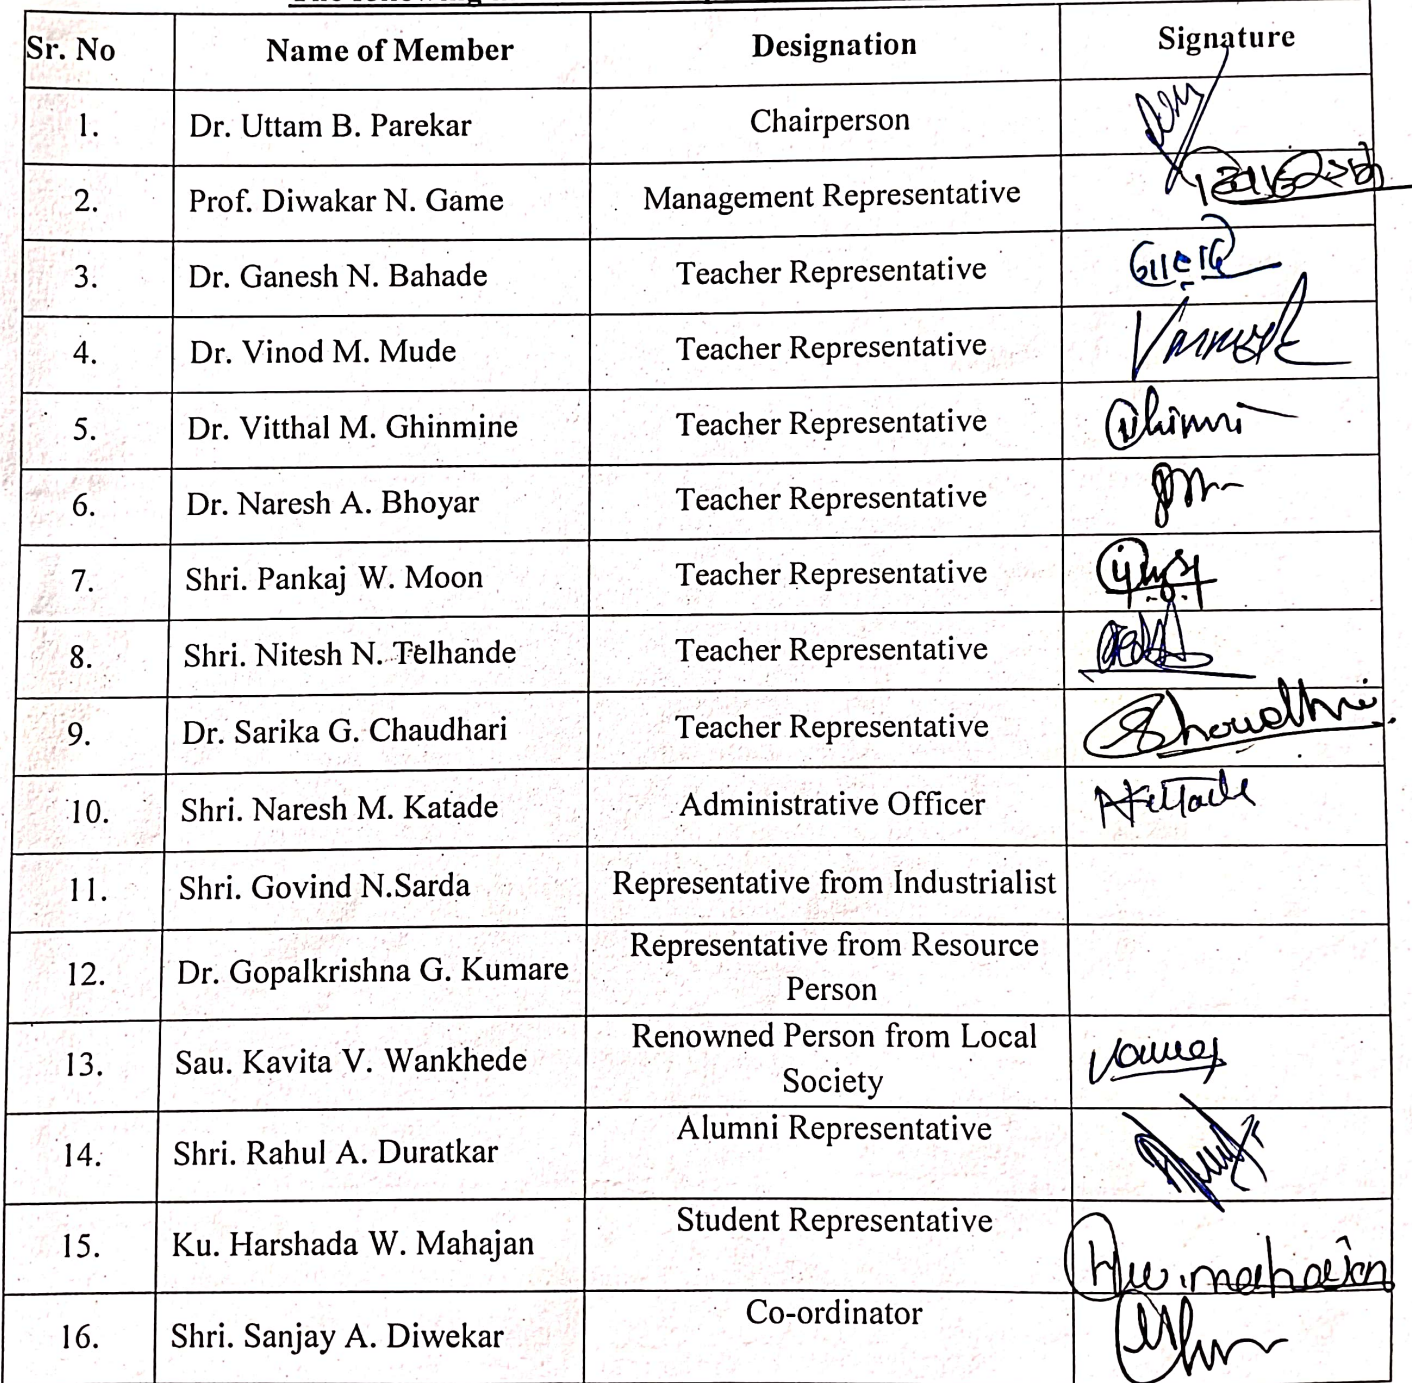 Sr. No Name of Member Designation Signature
1. Dr. Uttam B. Parekar Chairperson
2. Prof. Diwakar N. Game Management Representative
3. Dr. Ganesh N. Bahade Teacher Representative
4. Dr. Vinod M. Mude Teacher Representative
5. Dr. Vitthal M. Ghinmine Teacher Representative
6. Dr. Naresh A. Bhoyar Teacher Representative
7. Shri. Pankaj W. Moon Teacher Representative
8. Shri. Nitesh N. Telhande Teacher Representative
9. Dr. Sarika G. Chaudhari Teacher Representative
10. Shri. Naresh M. Katade Administrative Officer
11. Shri. Govind N.Sarda Representative from Industrialist
12. Dr. Gopalkrishna G. Kumare Representative from Resource
Person
13. Sau. Kavita V. Wankhede Renowned Person from Local
Society
14. Shri. Rahul A. Duratkar Alumni Representative
15. Ku. Harshada W. Mahajan Student Representative H.W.mahajan
16. Shri. Sanjay A. Diwekar Co-ordinator